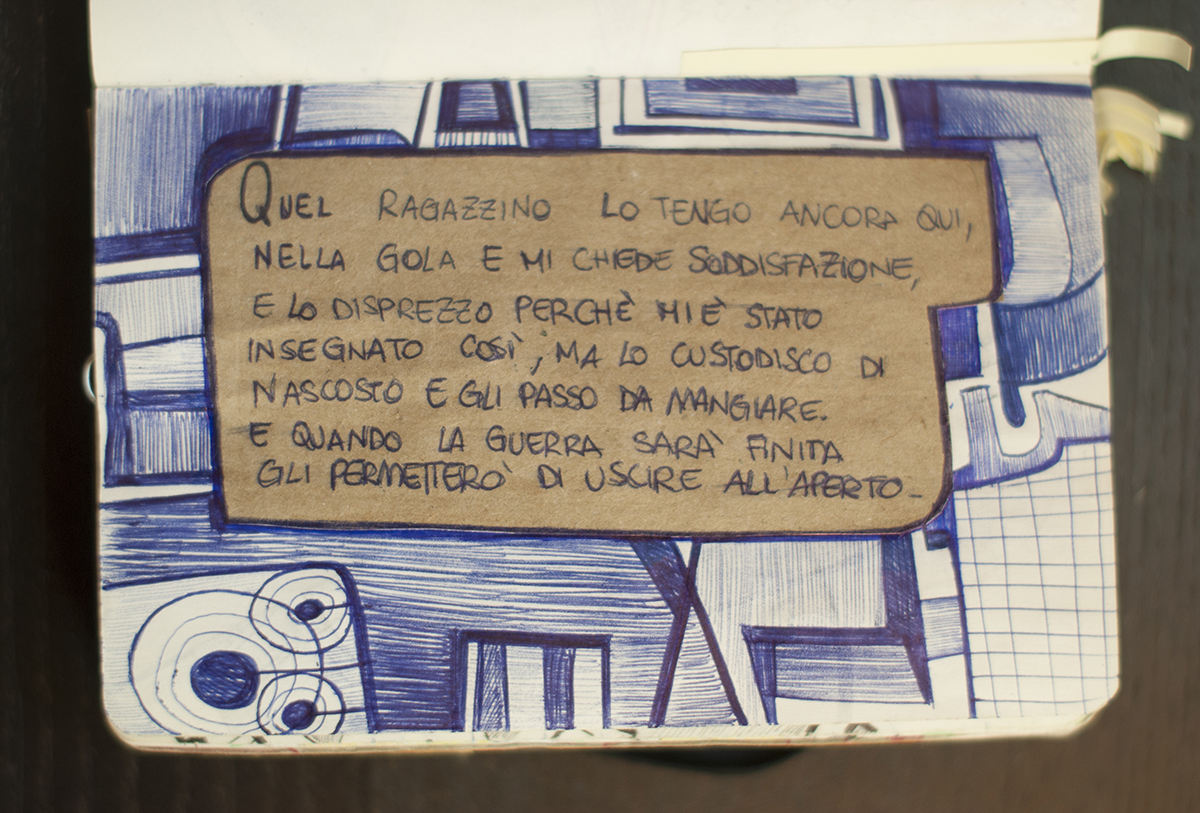 QUEL RAGAZZINO LO TENGO ANCORA QUI,
NELLA GOLA E MI CHIEDE SODDISFAZIONE,
E LO DISPREZZO PERCHÈ MI È STATO
INSEGNATO COSÌ, MA LO CUSTODISCO DI
NASCOSTO E GLI PASSO DA MANGIARE.
E QUANDO LA GUERRA SARA' FINITA
GLI PERMETTERO' DI USCIRE ALL'APERTO-